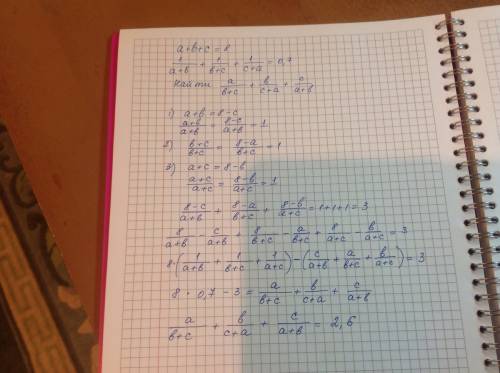 a+b+c=8
1/(a+b) + 1/(b+c) + 1/(c+a) = 0,7
Найти a/(b+c) + b/(c+a) + c/(a+b)
1) a+b = 8-c
(a+b)/(a+b) = (8-c)/(a+b) = 1
2) (b+c)/(b+c) = (8-a)/(b+c) = 1
3) a+c = 8-b
(a+c)/(a+c) = (8-b)/(a+c) = 1
(8-c)/(a+b) + (8-a)/(b+c) + (8-b)/(a+c) = 1+1+1 = 3
8/(a+b) - c/(a+b) + 8/(b+c) - a/(b+c) + 8/(a+c) - b/(a+c) = 3
8(1/(a+b) + 1/(b+c) + 1/(a+c)) - (c/(a+b) + a/(b+c) + b/(a+c)) = 3
8 · 0,7 - 3 = a/(b+c) + b/(c+a) + c/(a+b)
a/(b+c) + b/(c+a) + c/(a+b) = 2,6